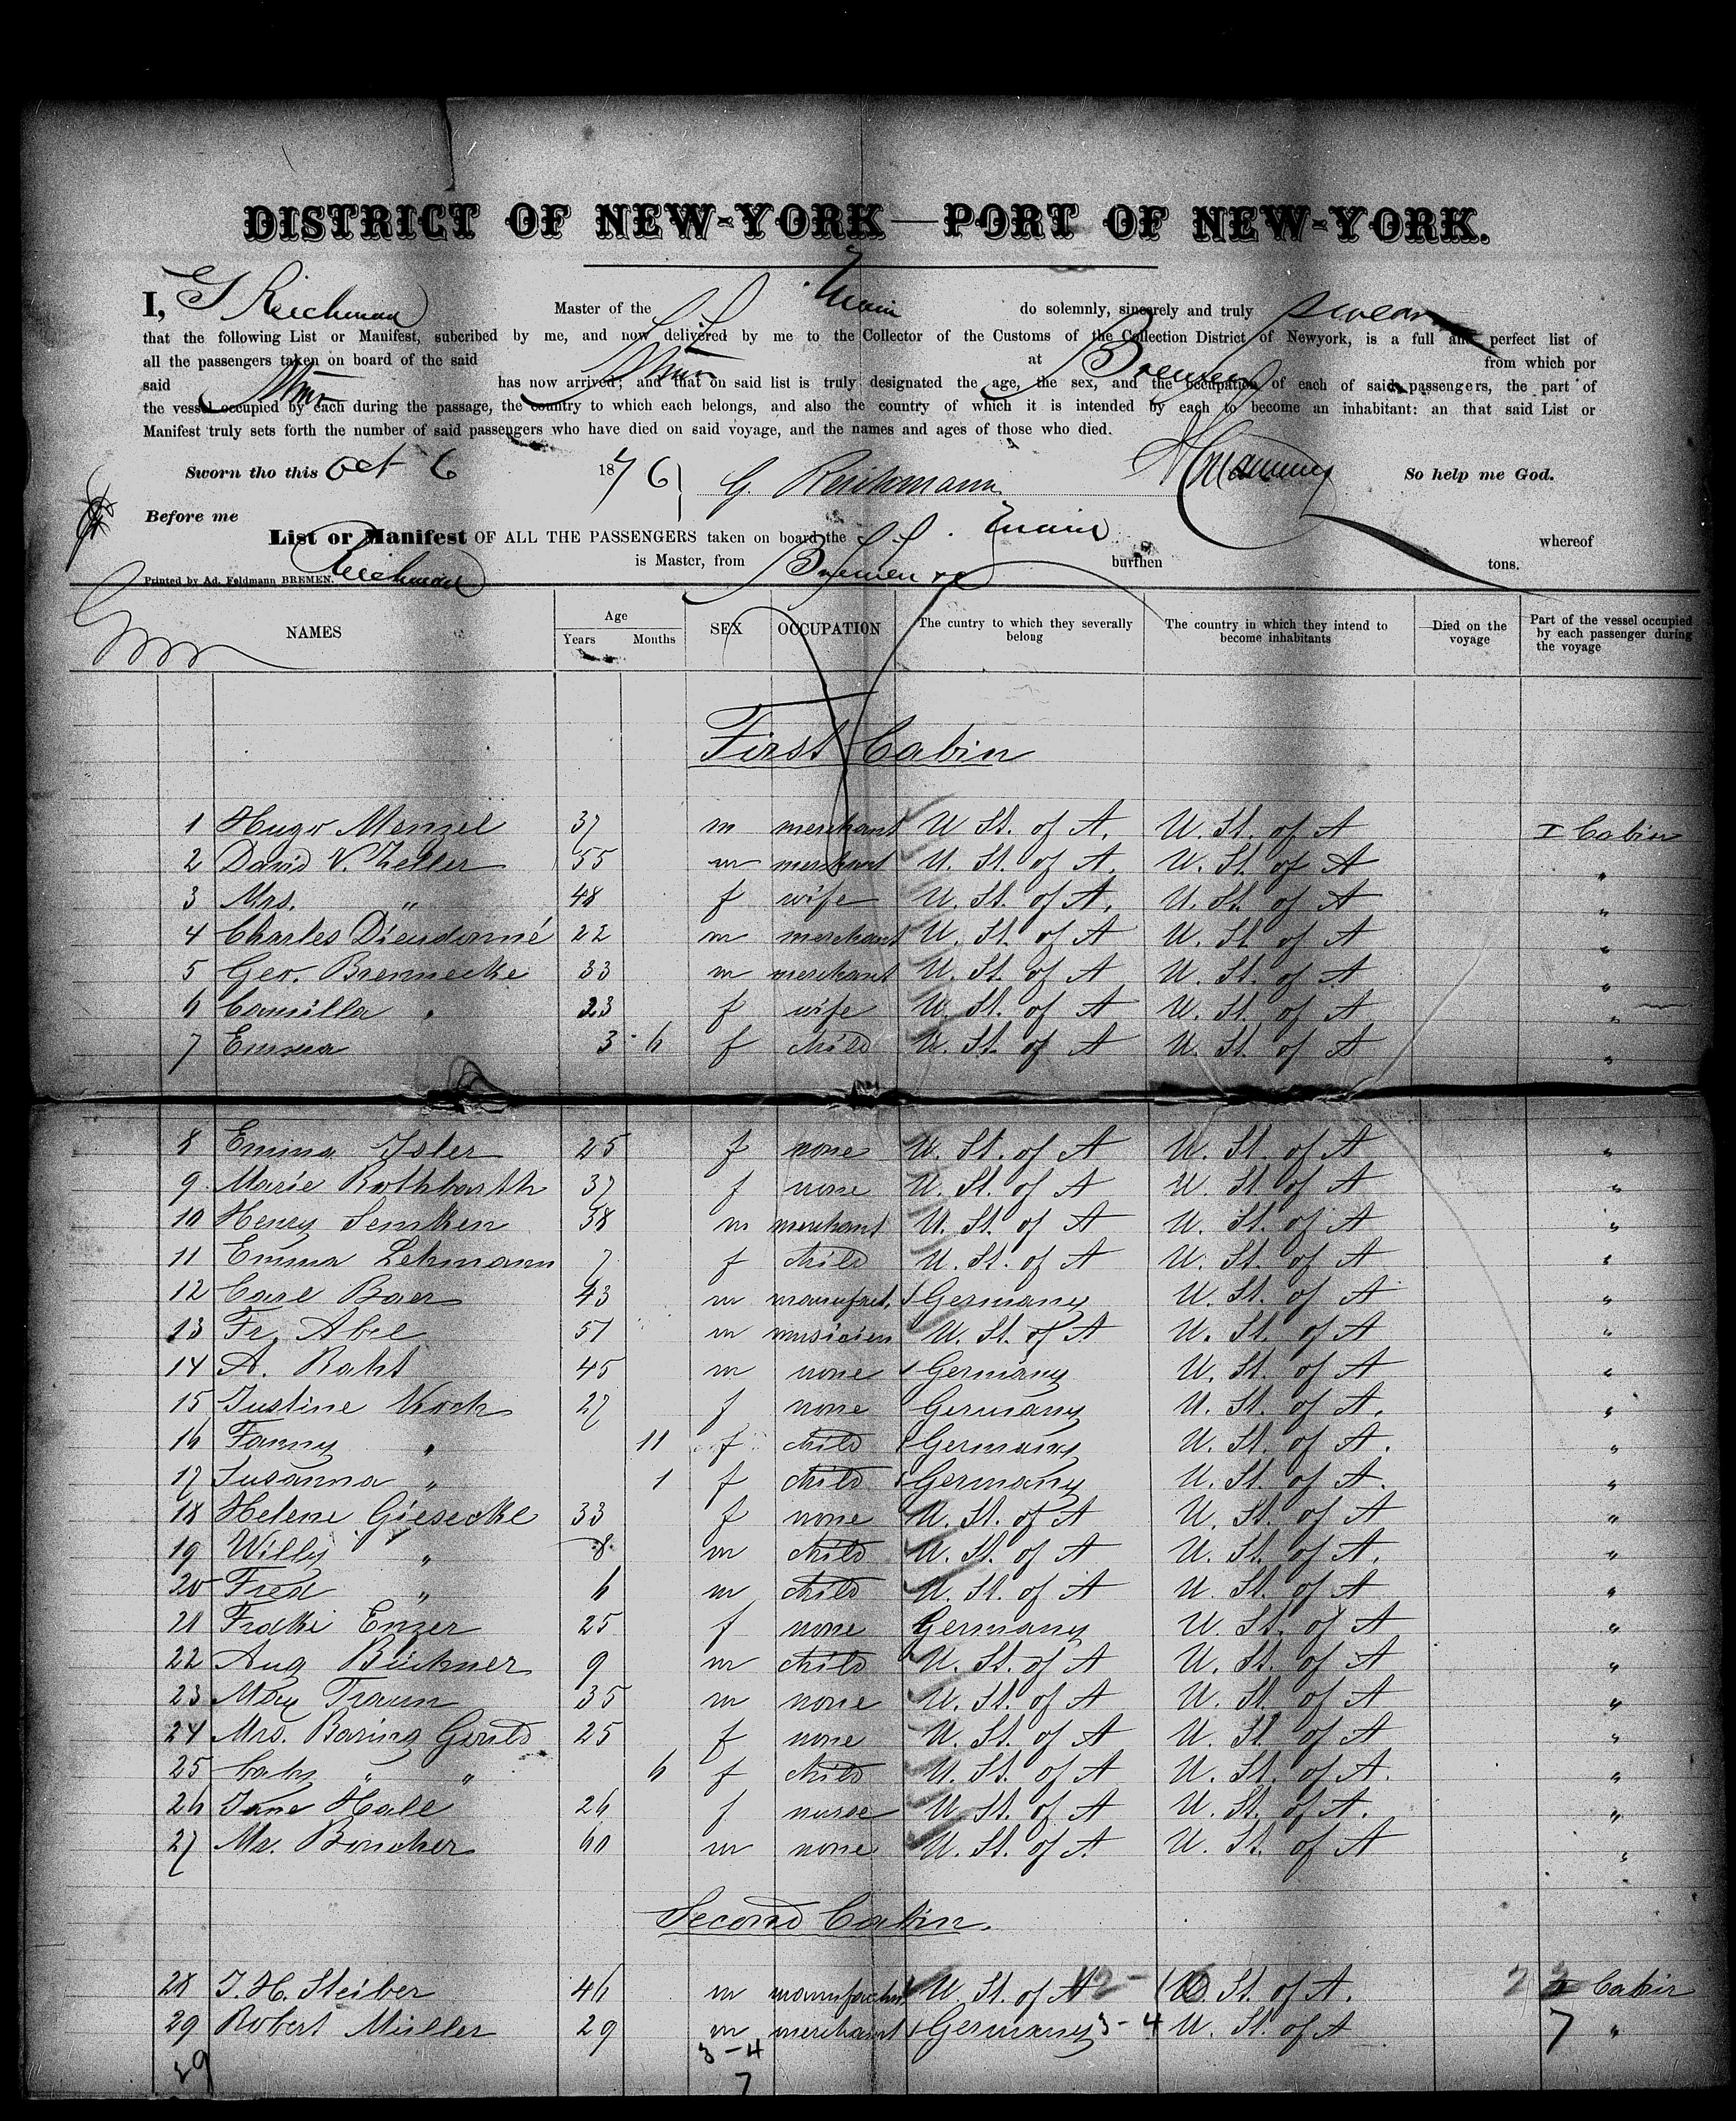 DISTRICT OF NEW-YORK—PORT OF NEW-YORK.
I, G Reichmann Master of the S. S. Main do solemnly, sincerely and truly swear
that the following List or Manifest, subcribed by me, and now delivered by me to the Collector of the Customs of the Collection District of Newyork, is a full and perfect list of
all the passengers taken on board of the said Main at Bremen from which por
said Main has now arrived; and that on said list is truly designated the age, the sex, and the occupation of each of said passengers, the part of
the vessel occupied by each during the passage, the country to which each belongs, and also the country of which it is intended by each to become an inhabitant: an that said List or
Manifest truly sets forth the number of said passengers who have died on said voyage, and the names and ages of those who died.
Sworn tho this Oct 6 1876 G. Reichmann So help me God.
Before me
List or Manifest OF ALL THE PASSENGERS taken on board the S. S. Main whereof
Reichmann is Master, from Bremen burthen tons.
Printed by Ad. Feldmann BREMEN.
NAMES Age Years Months SEX OCCUPATION The cuntry to which they severally belong The country in which they intend to become inhabitants Died on the voyage Part of the vessel occupied by each passenger during the voyage
First Cabin
1 Hugo Menzel 37 m merchant U. St. of A. U. St. of A I Cabin
2 David V. Zeller 55 m merchant U. St. of A. U. St. of A "
3 Mrs. " 48 f wife U. St. of A. U. St. of A "
4 Charles Dieudonné 22 m merchant U. St. of A U. St. of A "
5 Geo. Brennecke 33 m merchant U. St. of A U. St. of A "
6 Camilla " 23 f wife U. St. of A U. St. of A "
7 Emma 3 6 f child U. St. of A U. St. of A "
8 Emma Isler 25 f none U. St. of A U. St. of A "
9 Marie Rothbarth 37 f none U. St. of A U. St. of A "
10 Henry Semken 38 m merchant U. St. of A U. St. of A "
11 Emma Lehmann 7 f child U. St. of A U. St. of A "
12 Carl Baer 43 m manufact. Germany U. St. of A "
13 Fr. Abel 51 m musicien U. St. of A U. St. of A "
14 A. Raht 45 m none Germany U. St. of A "
15 Justine Koch 27 f none Germany U. St. of A. "
16 Fanny " 11 f child Germany U. St. of A. "
17 Susanna " 1 f child Germany U. St. of A. "
18 Helene Giesecke 33 f none U. St. of A U. St. of A "
19 Willy " 8 m child U. St. of A U. St. of A. "
20 Fred " 6 m child U. St. of A U. St. of A "
21 Enzer 25 f none Germany U. St. of A "
22 Aug Büchner 9 m child U. St. of A U. St. of A "
23 Max Traun 35 m none U. St. of A U. St. of A "
24 Mrs. Baring Gould 25 f none U. St. of A U. St. of A "
25 baby " " 6 f child U. St. of A U. St. of A. "
26 Jane Hall 26 f nurse U. St. of A U. St. of A. "
27 Mr. 60 m none U. St. of A U. St. of A "
Second Cabin.
28 J. H. Steiber 46 m manufacturer U. St. of A U. St. of A. Cabin
29 Robert Müller 29 m merchant Germany 3-4 U. St. of A 7 "
29 3-4
7